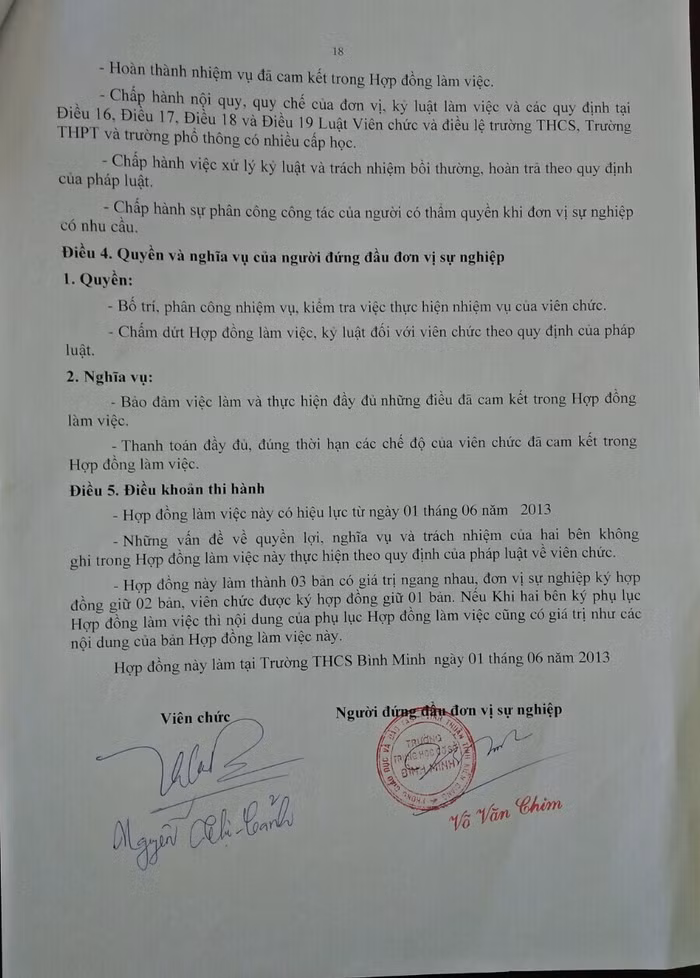 18
- Hoàn thành nhiệm vụ đã cam kết trong Hợp đồng làm việc.
- Chấp hành nội quy, quy chế của đơn vị, kỷ luật làm việc và các quy định tại
Điều 16, Điều 17, Điều 18 và Điều 19 Luật Viên chức và điều lệ trường THCS, Trường
THPT và trường phổ thông có nhiều cấp học.
- Chấp hành việc xử lý kỷ luật và trách nhiệm bồi thường, hoàn trả theo quy định
của pháp luật.
- Chấp hành sự phân công công tác của người có thẩm quyền khi đơn vị sự nghiệp
có nhu cầu.
Điều 4. Quyền và nghĩa vụ của người đứng đầu đơn vị sự nghiệp
1. Quyền:
- Bố trí, phân công nhiệm vụ, kiểm tra việc thực hiện nhiệm vụ của viên chức.
- Chấm dứt Hợp đồng làm việc, kỷ luật đối với viên chức theo quy định của pháp
luật.
2. Nghĩa vụ:
- Bảo đảm việc làm và thực hiện đầy đủ những điều đã cam kết trong Hợp đồng
làm việc.
- Thanh toán đầy đủ, đúng thời hạn các chế độ của viên chức đã cam kết trong
Hợp đồng làm việc.
Điều 5. Điều khoản thi hành
- Hợp đồng làm việc này có hiệu lực từ ngày 01 tháng 06 năm 2013
- Những vấn đề về quyền lợi, nghĩa vụ và trách nhiệm của hai bên không
ghi trong Hợp đồng làm việc này thực hiện theo quy định của pháp luật về viên chức.
- Hợp đồng này làm thành 03 bản có giá trị ngang nhau, đơn vị sự nghiệp ký hợp
đồng giữ 02 bản, viên chức được ký hợp đồng giữ 01 bản. Nếu Khi hai bên ký phụ lục
Hợp đồng làm việc thì nội dung của phụ lục Hợp đồng làm việc cũng có giá trị như các
nội dung của bản Hợp đồng làm việc này.
Hợp đồng này làm tại Trường THCS Bình Minh ngày 01 tháng 06 năm 2013
Viên chức
Người đứng đầu đơn vị sự nghiệp
TRƯỜNG
TRUNG HỌC CƠ SỞ
BÌNH MINH
Võ Văn Chim
Nguyễn